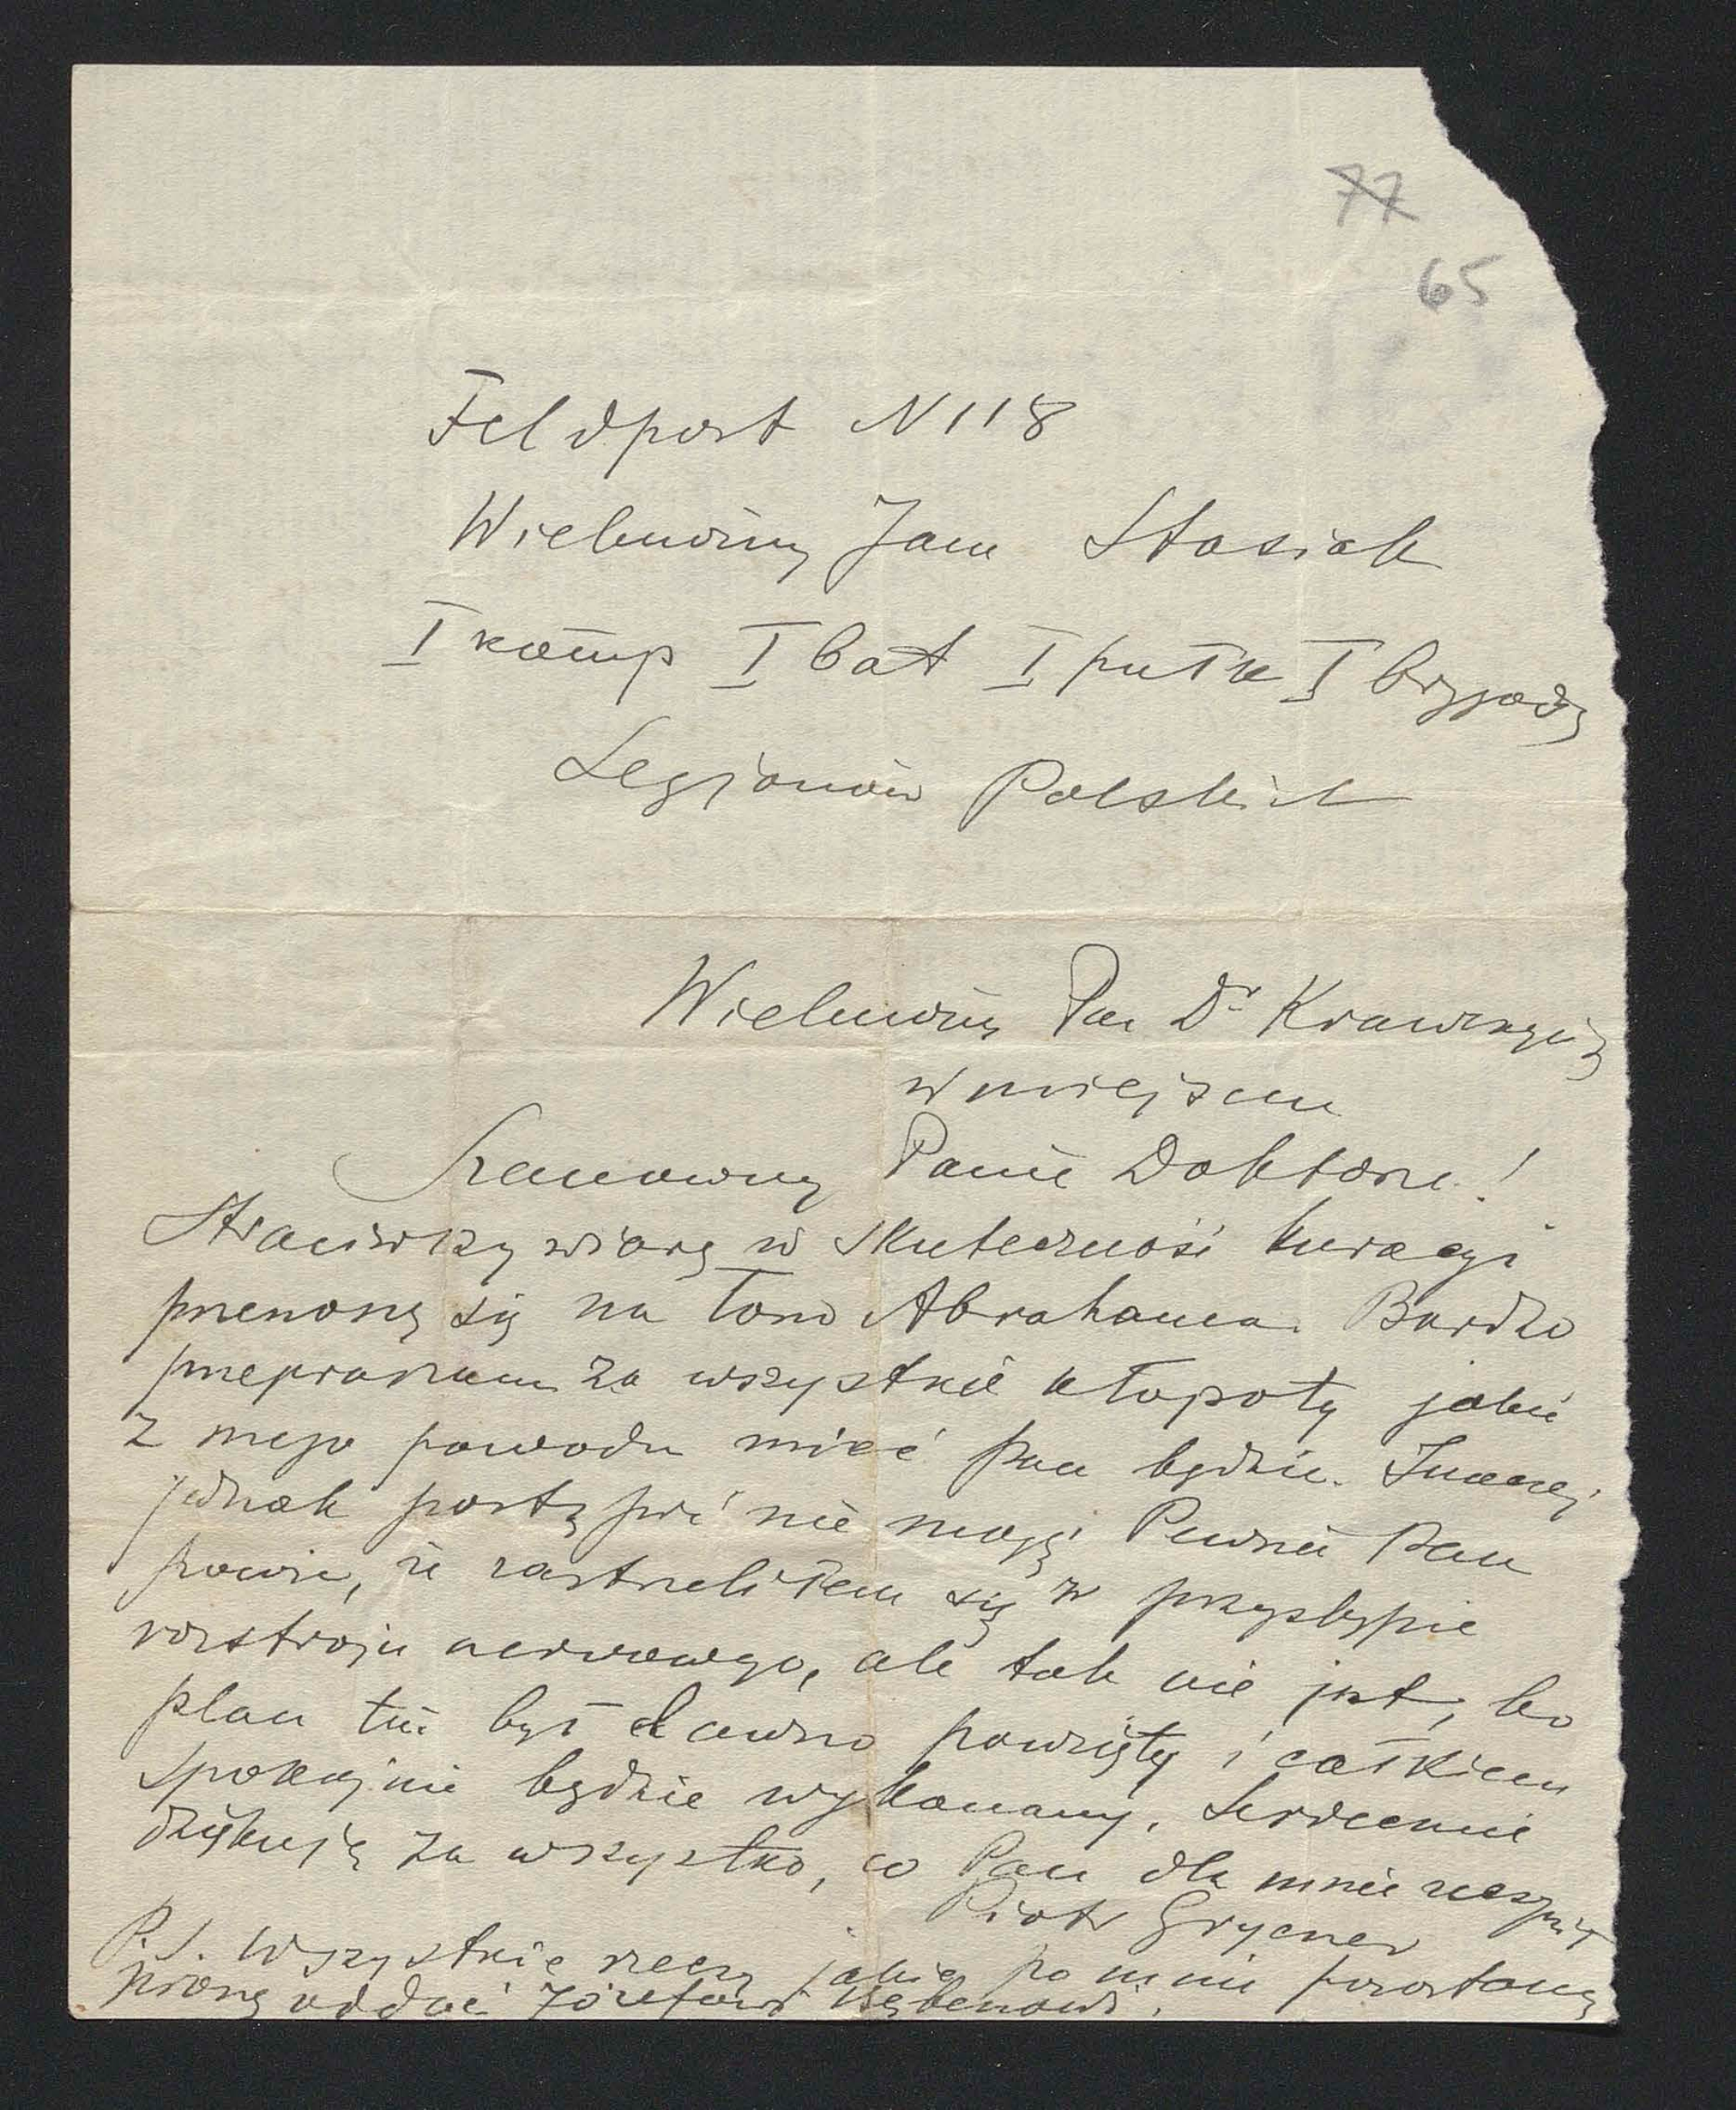 77
65
Feldpost N 118
Wielmożny Jan Stasiak
I komp I bat I pułk I brygady
Legjonów Polskich
Wielmożny Pan Dr Krawczyń
w miejscu
Szanowny Panie Doktorze!
Straciwszy wiarę w skuteczność kuracyi
przenoszę się na łono Abrahama. Bardzo
przepraszam za wszystkie kłopoty jakie
z mego powodu mieć Pan będzie. Inaczej
jednak postąpić nie mogę. Pewnie Pan
powie, że zastrzeliłem się w przystępie
rozstroju nerwowego, ale tak nie jest, bo
plan ten był dawno powzięty i całkiem
spokojnie będzie wykonany. Serdecznie
dziękuję za wszystko, co Pan dla mnie uczynił
Piotr Grycner
P.S. Wszystkie rzeczy jakie po mnie pozostaną
proszę oddać Józefowi